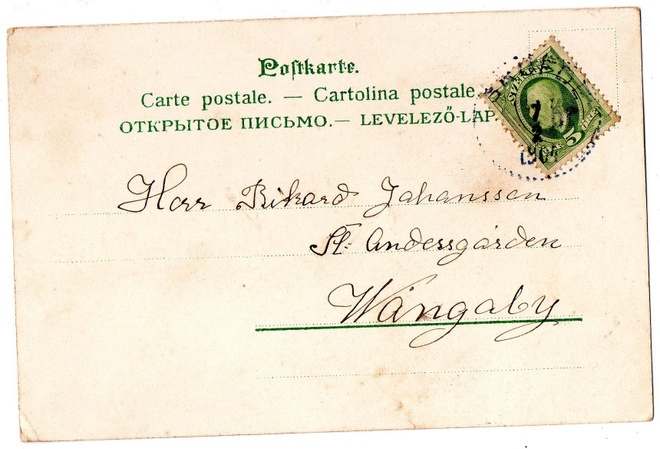 Postkarte.
Carte postale. — Cartolina postale.
ОТКРЫТОЕ ПИСЬМО. — LEVELEZŐ-LAP.
Herr Rikard Johansson
St. Andessgården
Wångaby
5
1904